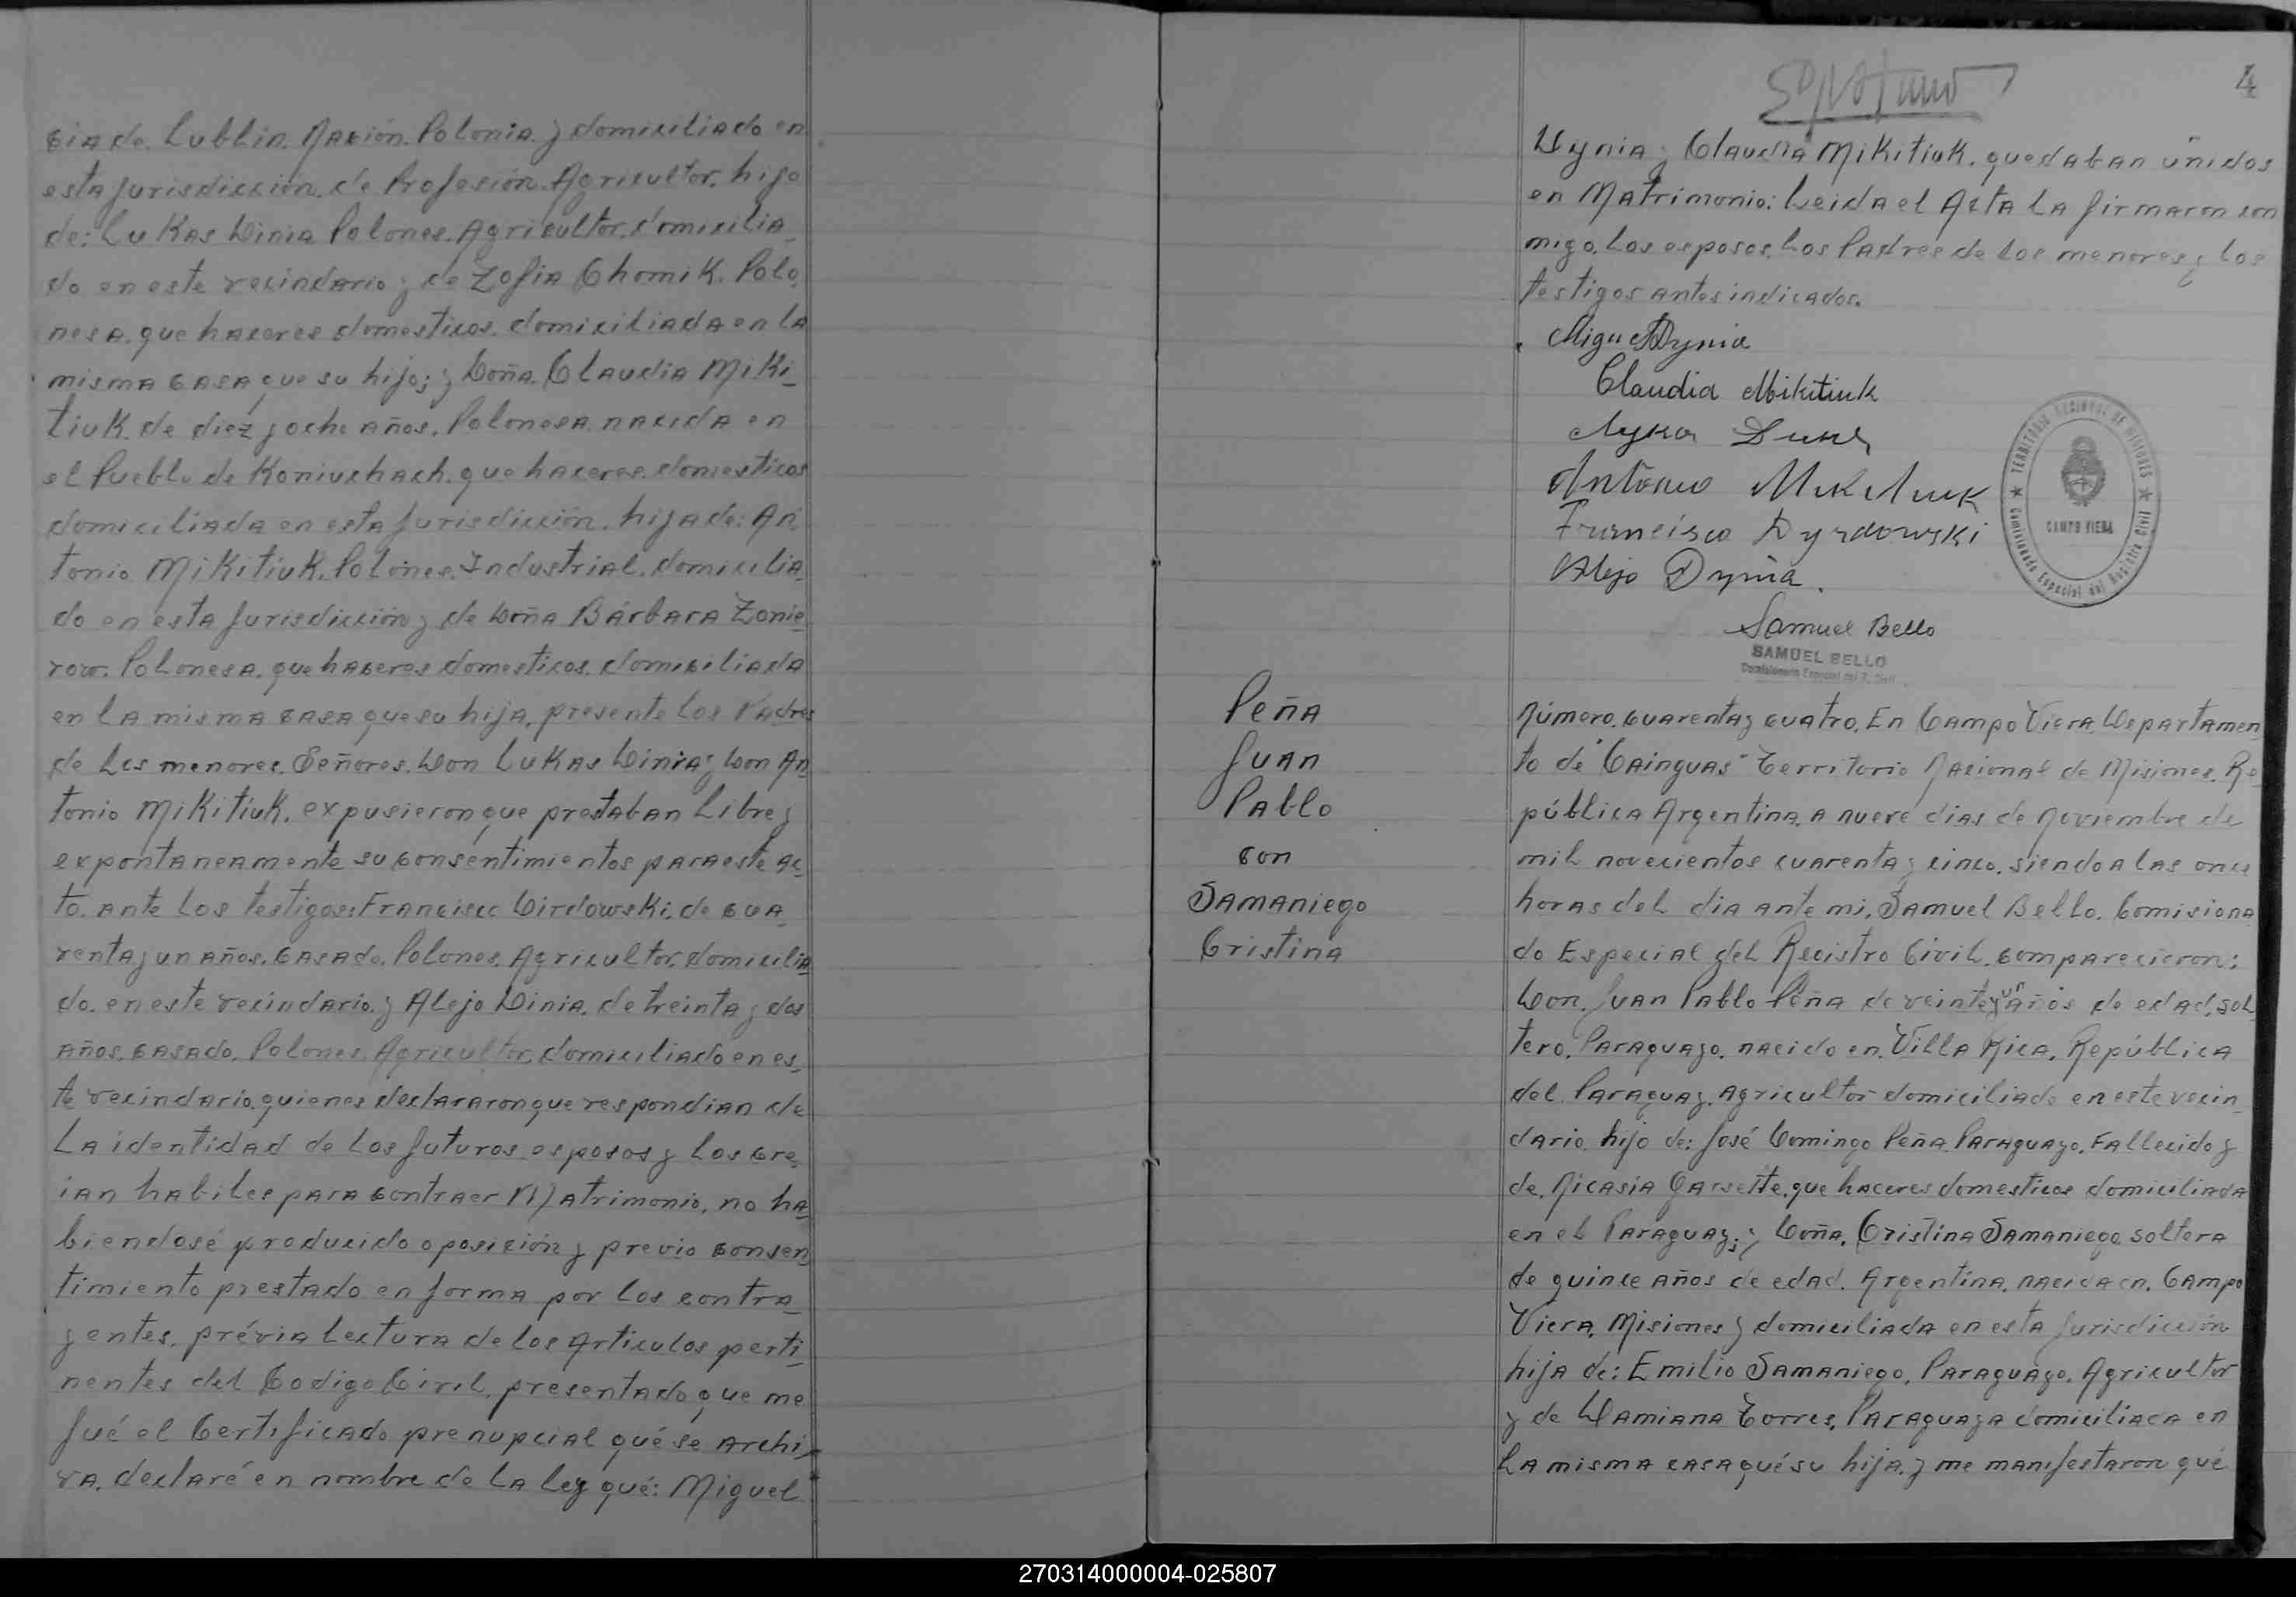 cia de. Lublin. Nación. Polonia. y domiciliado en
esta Jurisdicción. de Profesión. Agricultor. hijo
de: Lukas Dinia Polones. Agricultor. domicilia_
do en este vecindario y de Zofia Chomik. Polo_
nesa. que haceres domesticos. domiciliada en la
misma casa que su hijo; y Doña. Claudia Miki_
tiuk. de diez y ocho años. Polonesa nacida en
el Pueblo de Koniuchach. que haceres. domesticos
domiciliada en esta Jurisdicción. hija de: An_
tonio Mikitiuk. Polones. Industrial. domicilia_
do en esta Jurisdicción y de Doña Bárbara Zonie_
row. Polonesa. que haceres domesticos. domiciliada
en la misma casa que su hija. presente los Padres
de los menores. Señores. Don Lukas Dinia y Don An_
tonio Mikitiuk. expusieron que prestaban Libre y
expontaneamente su consentimientos para este ac_
to. ante los testigos: Francisco Dirdowski. de cua_
renta y un años. casado. Polones. Agricultor. domicilia_
do. en este vecindario. y Alejo Dinia. de treinta y dos
años. casado. Polones. Agricultor. domiciliado en es_
te vecindario. quienes declararon que respondian de
La identidad de los futuros esposos y los cre_
ian habiles para contraer Matrimonio, no ha_
biendosé producido oposición y previo consen_
timiento prestado en forma por los contra_
yentes. prévia lectura de los Articulos perti_
nentes del Codigo Civil. presentado que me
fué el Certificado prenupcial qué se archi_
va. declaré en nombre de la Ley qué: Miguel
4
Dynia y Claudia Mikitiuk. quedaban unidos
en Matrimonio: Leida el Acta la firmaron con
migo. los esposos. los Padres de los menores y los
testigos antes indicados.
Miguel Dynia
Claudia Mikitiuk
Antonio Mikitiuk
Francisco Dyrdowski
Alejo Dynia.
TERRITORIO NACIONAL DE MISIONES
CAMPO VIERA
Comisionado Especial del Registro Civil
Samuel Bello
SAMUEL BELLO
Comisionado Especial del R. Civil
Peña
Juan
Pablo
con
Samaniego
Cristina
Número. cuarenta y cuatro. En Campo Viera. Departamen_
to de "Cainguas" Territorio Nacional de Misiones. Re_
pública Argentina. a nueve dias de Noviembre de
mil novecientos cuarenta y cinco. siendo a las once
horas del dia ante mi. Samuel Bello. Comisiona_
do Especial del Recistro Civil. comparecieron:
Don. Juan Pablo Peña de veinte y un años de edad. sol_
tero. Paraguayo. nacido en. Villa Rica. República
del Paraguay. Agricultor domiciliado en este vecin_
dario hijo de: José Domingo Peña. Paraguayo. Fallecido y
de. Nicasia Garsette. que haceres domesticos domiciliada
en el Paraguay; y Doña. Cristina Samaniego soltera
de quince años de edad. Argentina. nacida en. Campo
Viera. Misiones y domiciliada en esta Jurisdicción
hija de: Emilio Samaniego. Paraguayo. Agricultor
y de Damiana Torres. Paraguaya domiciliada en
la misma casa qué su hija. y me manifestaron qué
270314000004-025807